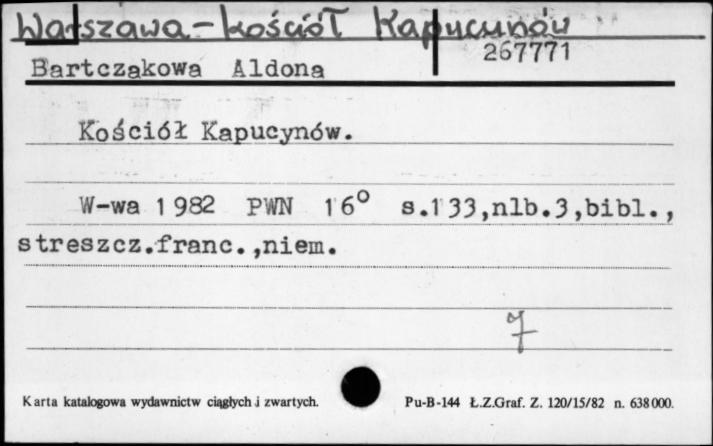 Warszawa - kościół Kapucynów
267771
Bartczakowa Aldona
Kościół Kapucynów.
W-wa 1982 PWN 16° s.133,nlb.3,bibl.,
streszcz.franc.,niem.
7
Karta katalogowa wydawnictw ciągłych i zwartych.
Pu-B-144 Ł.Z.Graf. Z. 120/15/82 n. 638000.